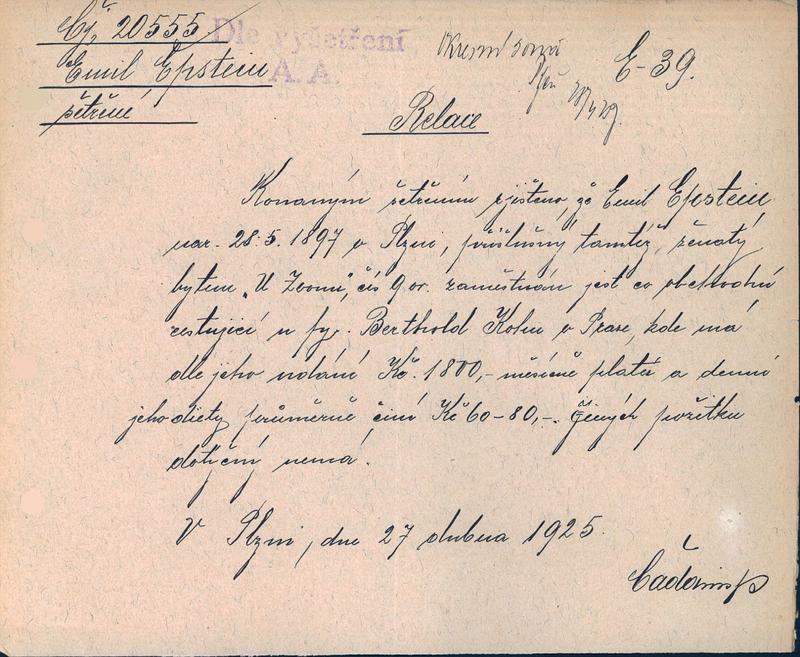 Čj. 20555
Dle vyšetření
A. A.
Emil Epstein
šetření
Okresní soud
E-39.
Relace
Konaným šetřením zjištěno, že Emil Epstein
nar. 28.5.1897 v Plzni, příslušný tamtéž, ženatý
bytem „U Zvonu", čís 9 or. zaměstnán jest co obchodní
cestující u fy. Berthold Kohn v Praze, kde má
dle jeho udání Kč. 1800,- měsíčně platu a denní
jeho diety průměrně činí Kč 60-80,-. Jiných požitků
dotyčný nemá.
V Plzni, dne 27 dubna 1925.